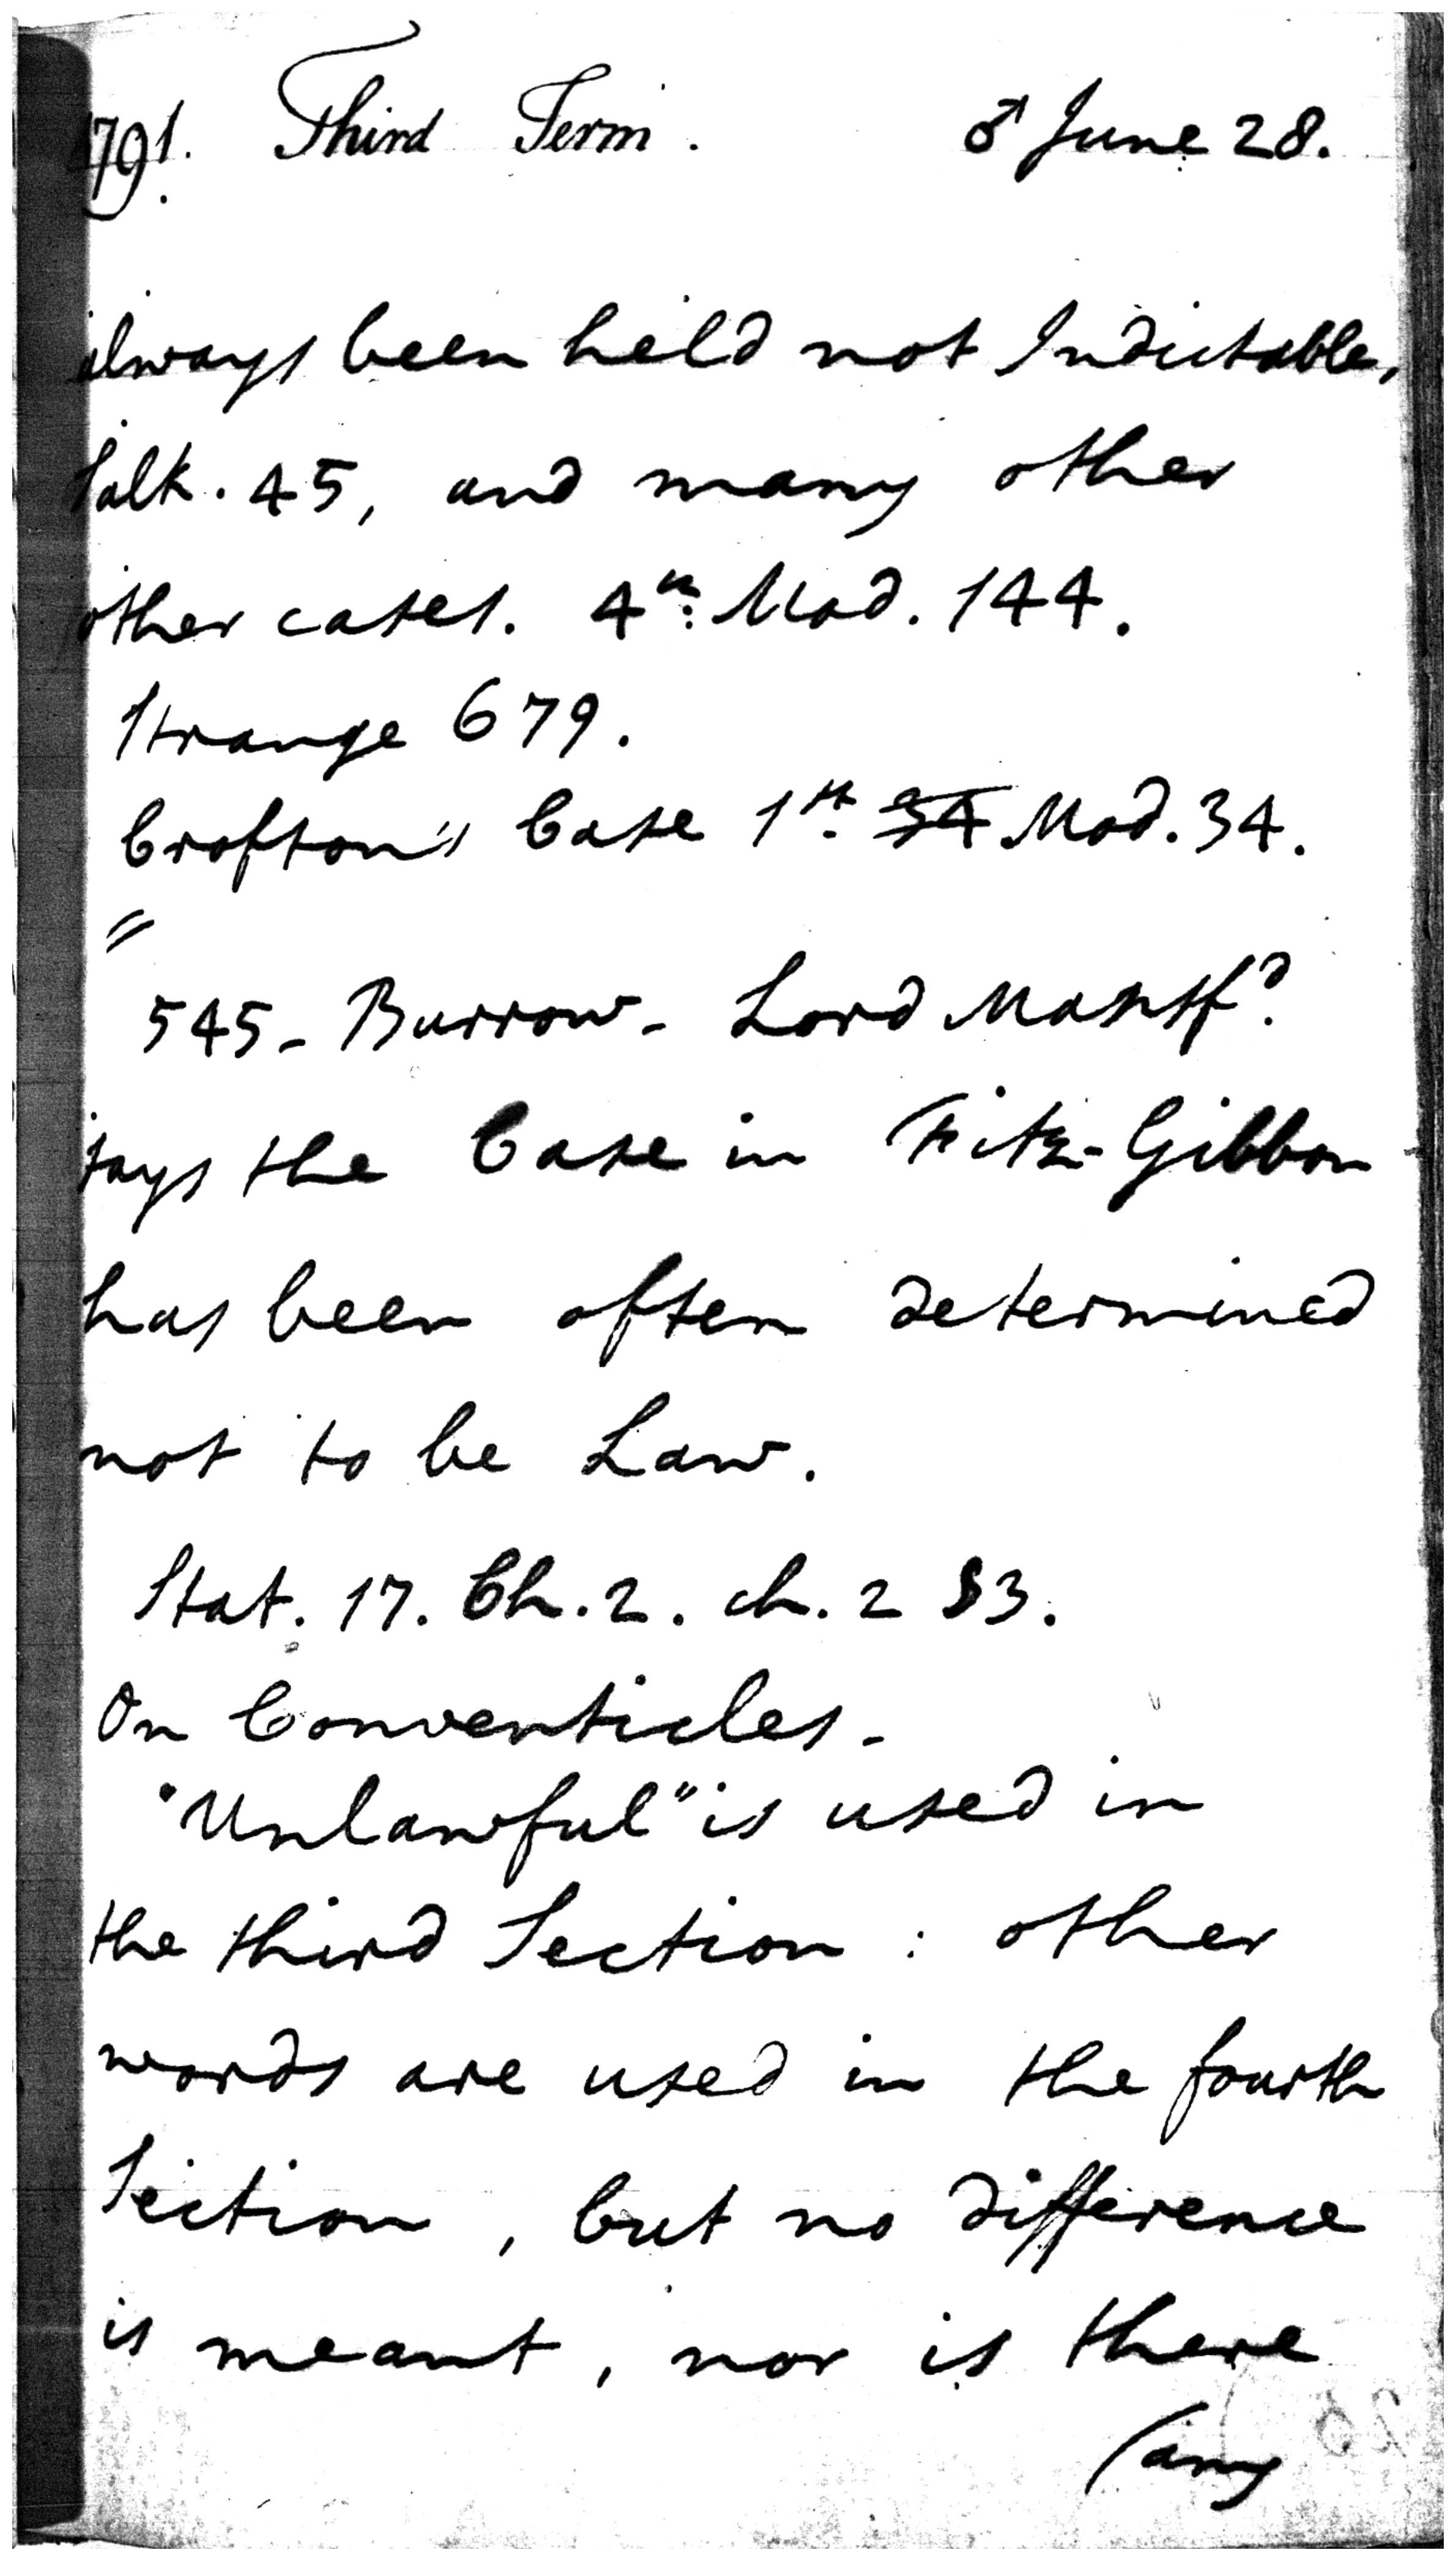 1791. Third Term. ♂ June 28.
always been held not Indictable,
Salk. 45, and many other
other cases. 4th. Mod. 144.
Strange 679.
Crofton's Case 1st. 34 Mod. 34.
=
545 - Burrow - Lord Mansfd.
says the Case in Fitz-Gibbon
has been often determined
not to be Law.
Stat. 17. Ch. 2. ch. 2 §3.
On Conventicles -
"Unlawful" is used in
the third Section : other
words are used in the fourth
Section, but no difference
is meant, nor is there
(any